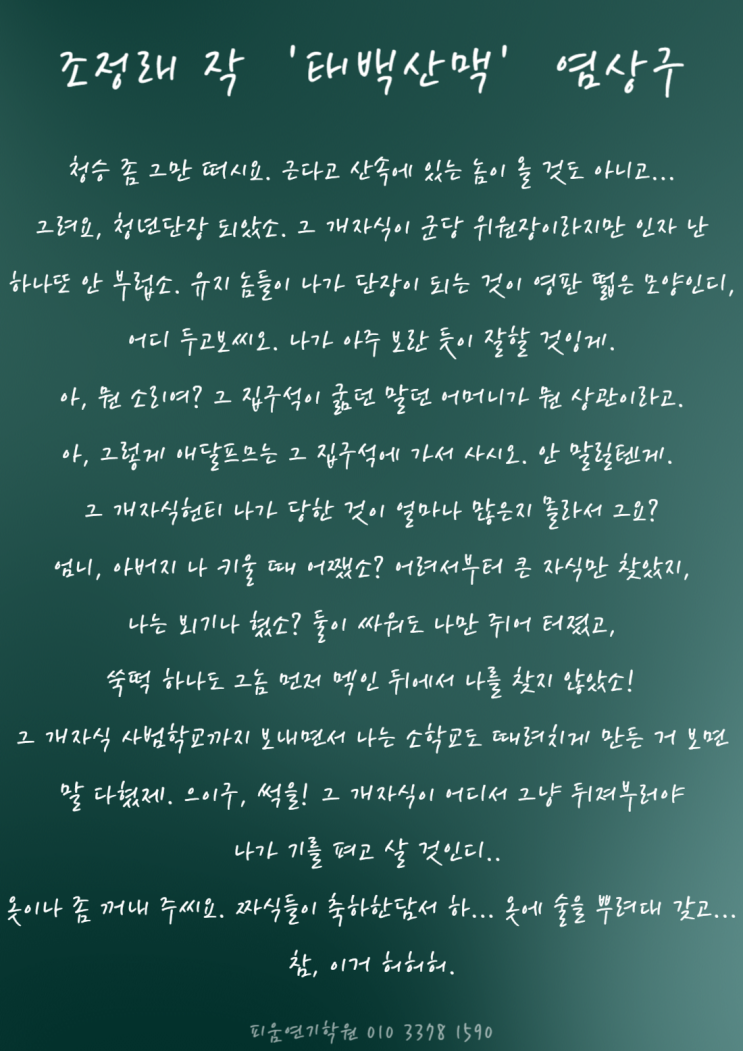 조정래 작 '태백산맥' 염상구
청승 좀 그만 떠시요. 근다고 산속에 있는 놈이 올 것도 아니고...
그려요, 청년단장 되았소. 그 개자식이 군당 위원장이라지만 인자 난
하나또 안 부럽소. 유지 놈들이 나가 단장이 되는 것이 영판 떫은 모양인디,
어디 두고보씨오. 나가 아주 보란 듯이 잘할 것잉게.
아, 뭔 소리여? 그 집구석이 굶던 말던 어머니가 뭔 상관이라고.
아, 그렇게 애달프므는 그 집구석에 가서 사시오. 안 말릴텐게.
그 개자식헌티 나가 당한 것이 얼마나 많은지 몰라서 그요?
엄니, 아버지 나 키울 때 어쨌소? 어려서부터 큰 자식만 찾았지,
나는 뵈기나 혔소? 둘이 싸워도 나만 쥐어 터졌고,
쑥떡 하나도 그놈 먼저 멕인 뒤에서 나를 찾지 않았소!
그 개자식 사범학교까지 보내면서 나는 소학교도 때려치게 만든 거 보면
말 다혔제. 으이구, 썩을! 그 개자식이 어디서 그냥 뒤져부러야
나가 기를 펴고 살 것인디..
옷이나 좀 꺼내 주씨요. 짜식들이 축하한담서 하... 옷에 술을 뿌려대 갖고...
참, 이거 허허허.
피움연기학원 010 3378 1590